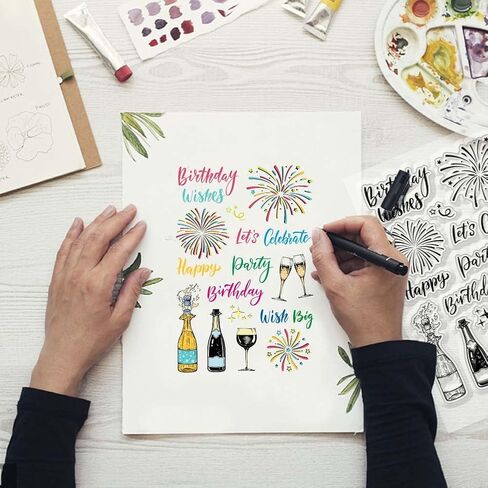 Birthday
Wishes
Let's Celebrate
Happy Party
Birthday
Wish Big
Birthday
Wishes
Let's
Happy
Birthday